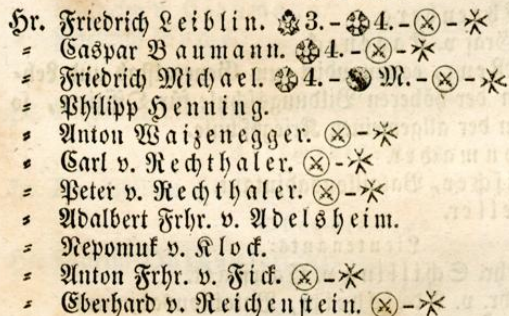 Hr. Friedrich Leiblin. 3.-4.-
" Caspar Baumann. 4.-
" Friedrich Michael. 4. M.-
" Philipp Henning.
" Anton Waizenegger.
" Carl v. Rechthaler.
" Peter v. Rechthaler.
" Adalbert Frhr. v. Adelsheim.
" Nepomuk v. Klock.
" Anton Frhr. v. Fick.
" Eberhard v. Reichenstein.